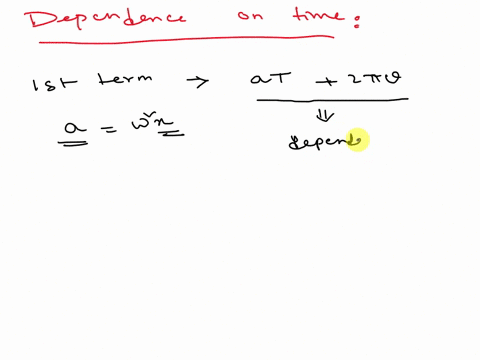 Dependence on time:
1st term → aT + 2πυ
a = ω²x
⇓
depend